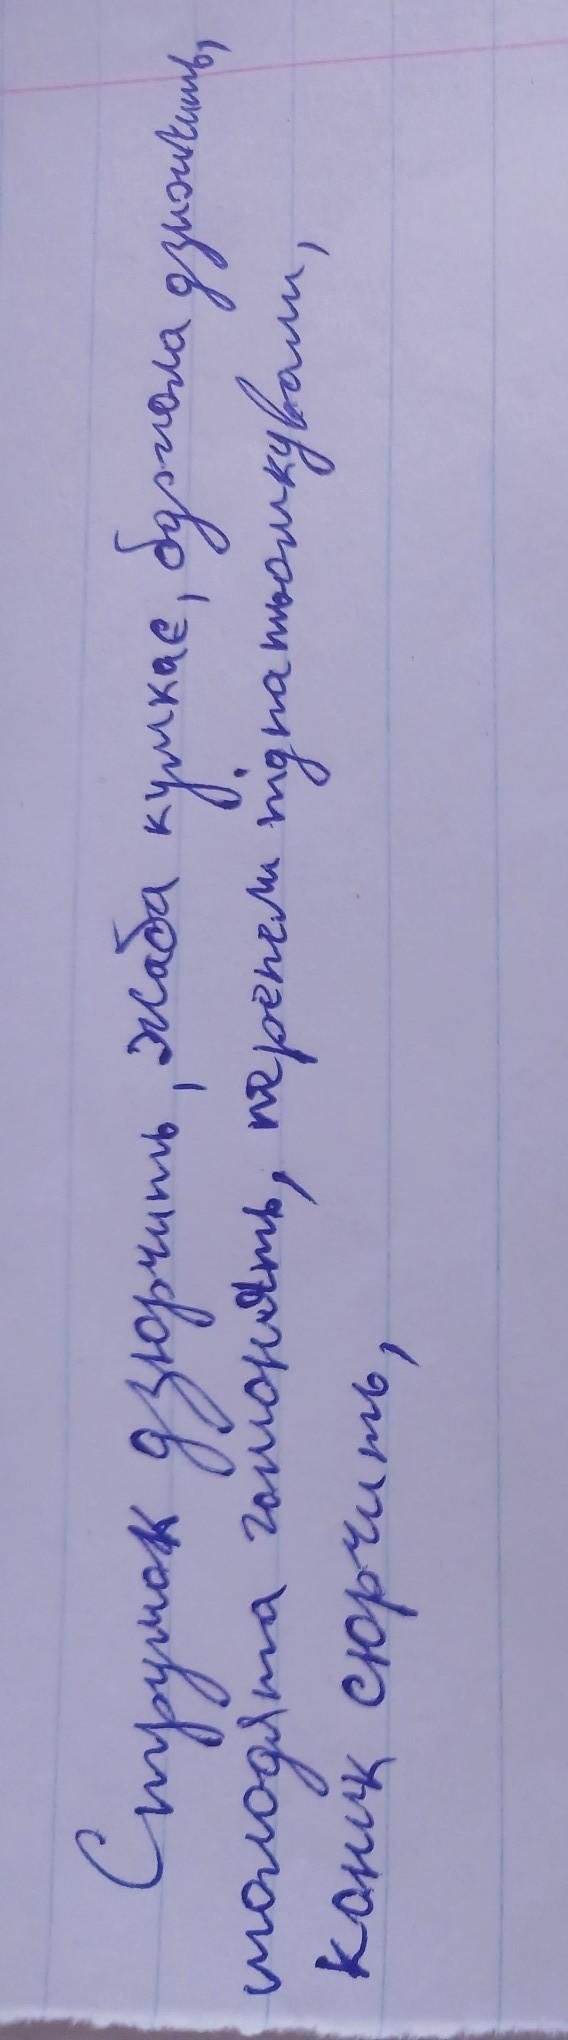 Струмок дзюрчить, жаба кумкає, бджола дзижчить,
молодята гомонять, перепели підпатьомкували,
коник сюрчить,